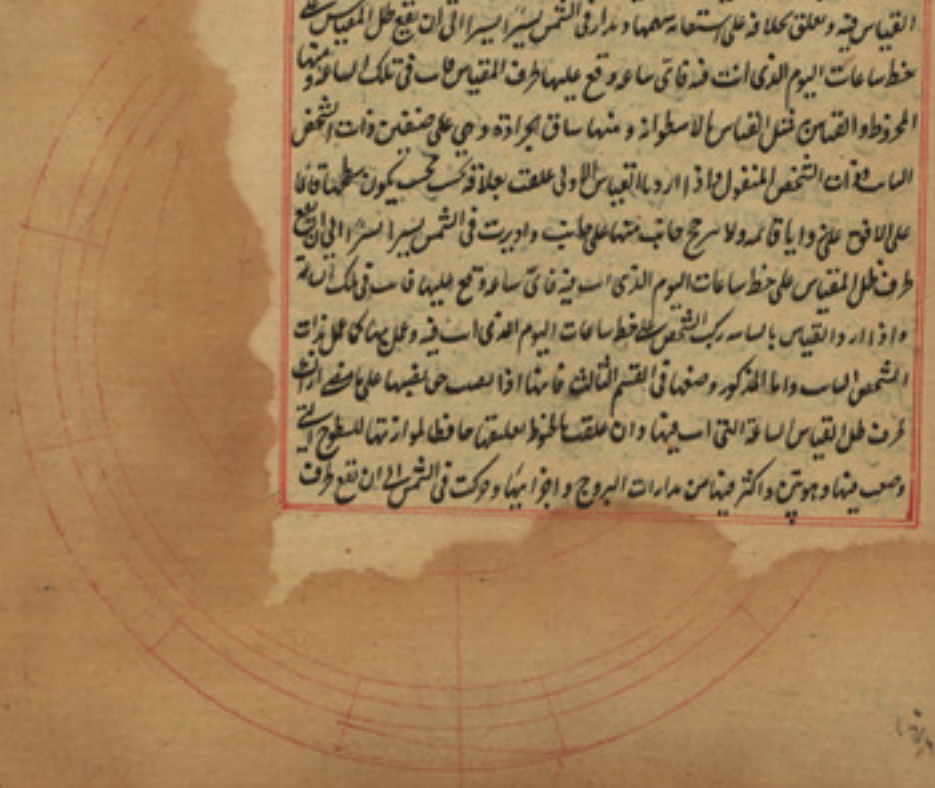 القياس فيه و يعلق بخلافه على استقامة سهمها و يدار فى الشمس يسيرا يسيرا الى ان يقع ظل المقياس على
خط ساعات اليوم الذى انت فيه فاى ساعة وقع عليها طرف المقياس فانت فى تلك الساعة و منها
المخروط و القياس مثل القياس بالاسطوانة و منها ساق الجرادة و هى على صنفين ذات الشخص
الثابت و ذات الشخص المنقول و اذا اردنا القياس الاولى علقت بعلاقة بحيث يكون سطحها قائما
على الافق على زوايا قائمة و لا يرجح جانب منها على جانب و اديرت فى الشمس يسيرا يسيرا الى ان يقع
طرف ظل المقياس على خط ساعات اليوم الذى انت فيه فاى ساعة وقع عليها فانت فى تلك الساعة
و اذا اردنا القياس بالثانية ركب الشخص على خط ساعات اليوم الذى انت فيه و عمل بها كما عمل بذات
الشخص الثابت و اما المذكور وصفها فى القسم الثالث فانها اذا نصبت حق نصبها على
طرف ظل القياس الساعة التى انت فيها و ان علقت بالخيوط تعليقها حافظا لموازنتها للسطوح التى
و اكثر فيها من مدارات البروج و اجزائها و حركت فى الشمس الى ان يقع طرف